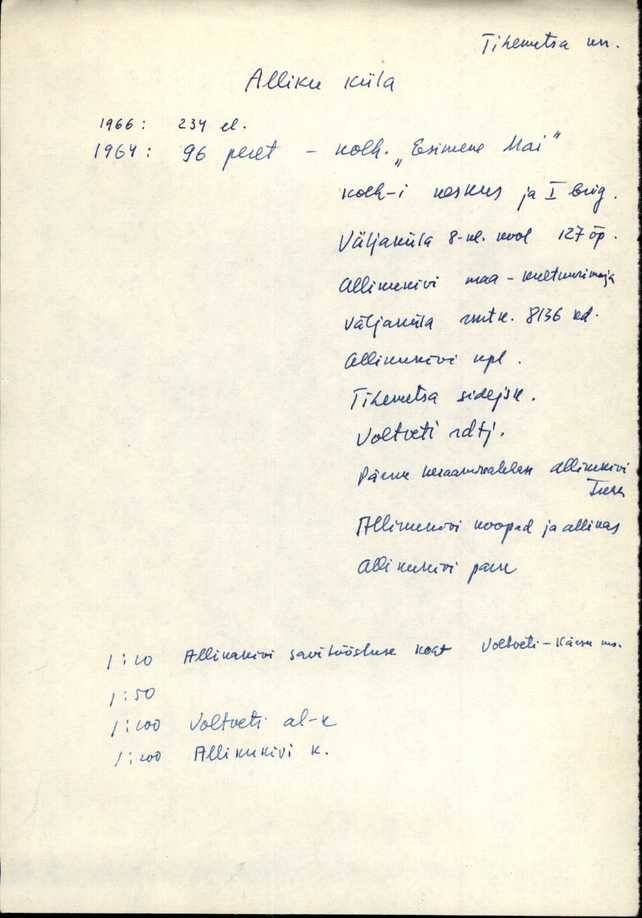 Tihemetsa kn.
Alliku küla
1966: 234 el.
1964: 96 peret – kolh. „Esimene Mai"
kolh-i keskus ja I brig.
Väljaküla 8-kl. kool 127 õp.
Allikukivi maa-kultuurimaja
Väljaküla rmtk. 8136 kd.
Allikukivi kpl.
Tihemetsa sidejsk.
Voltveti rdtj.
Pärnu Allikukivi
Allikukivi koopad ja allikas
Allikukivi park
1:10 Allikukivi savitööstuse koht Voltveti-Kärsu mn.
1:50
1:100 Voltveti al-k
1:200 Allikukivi k.